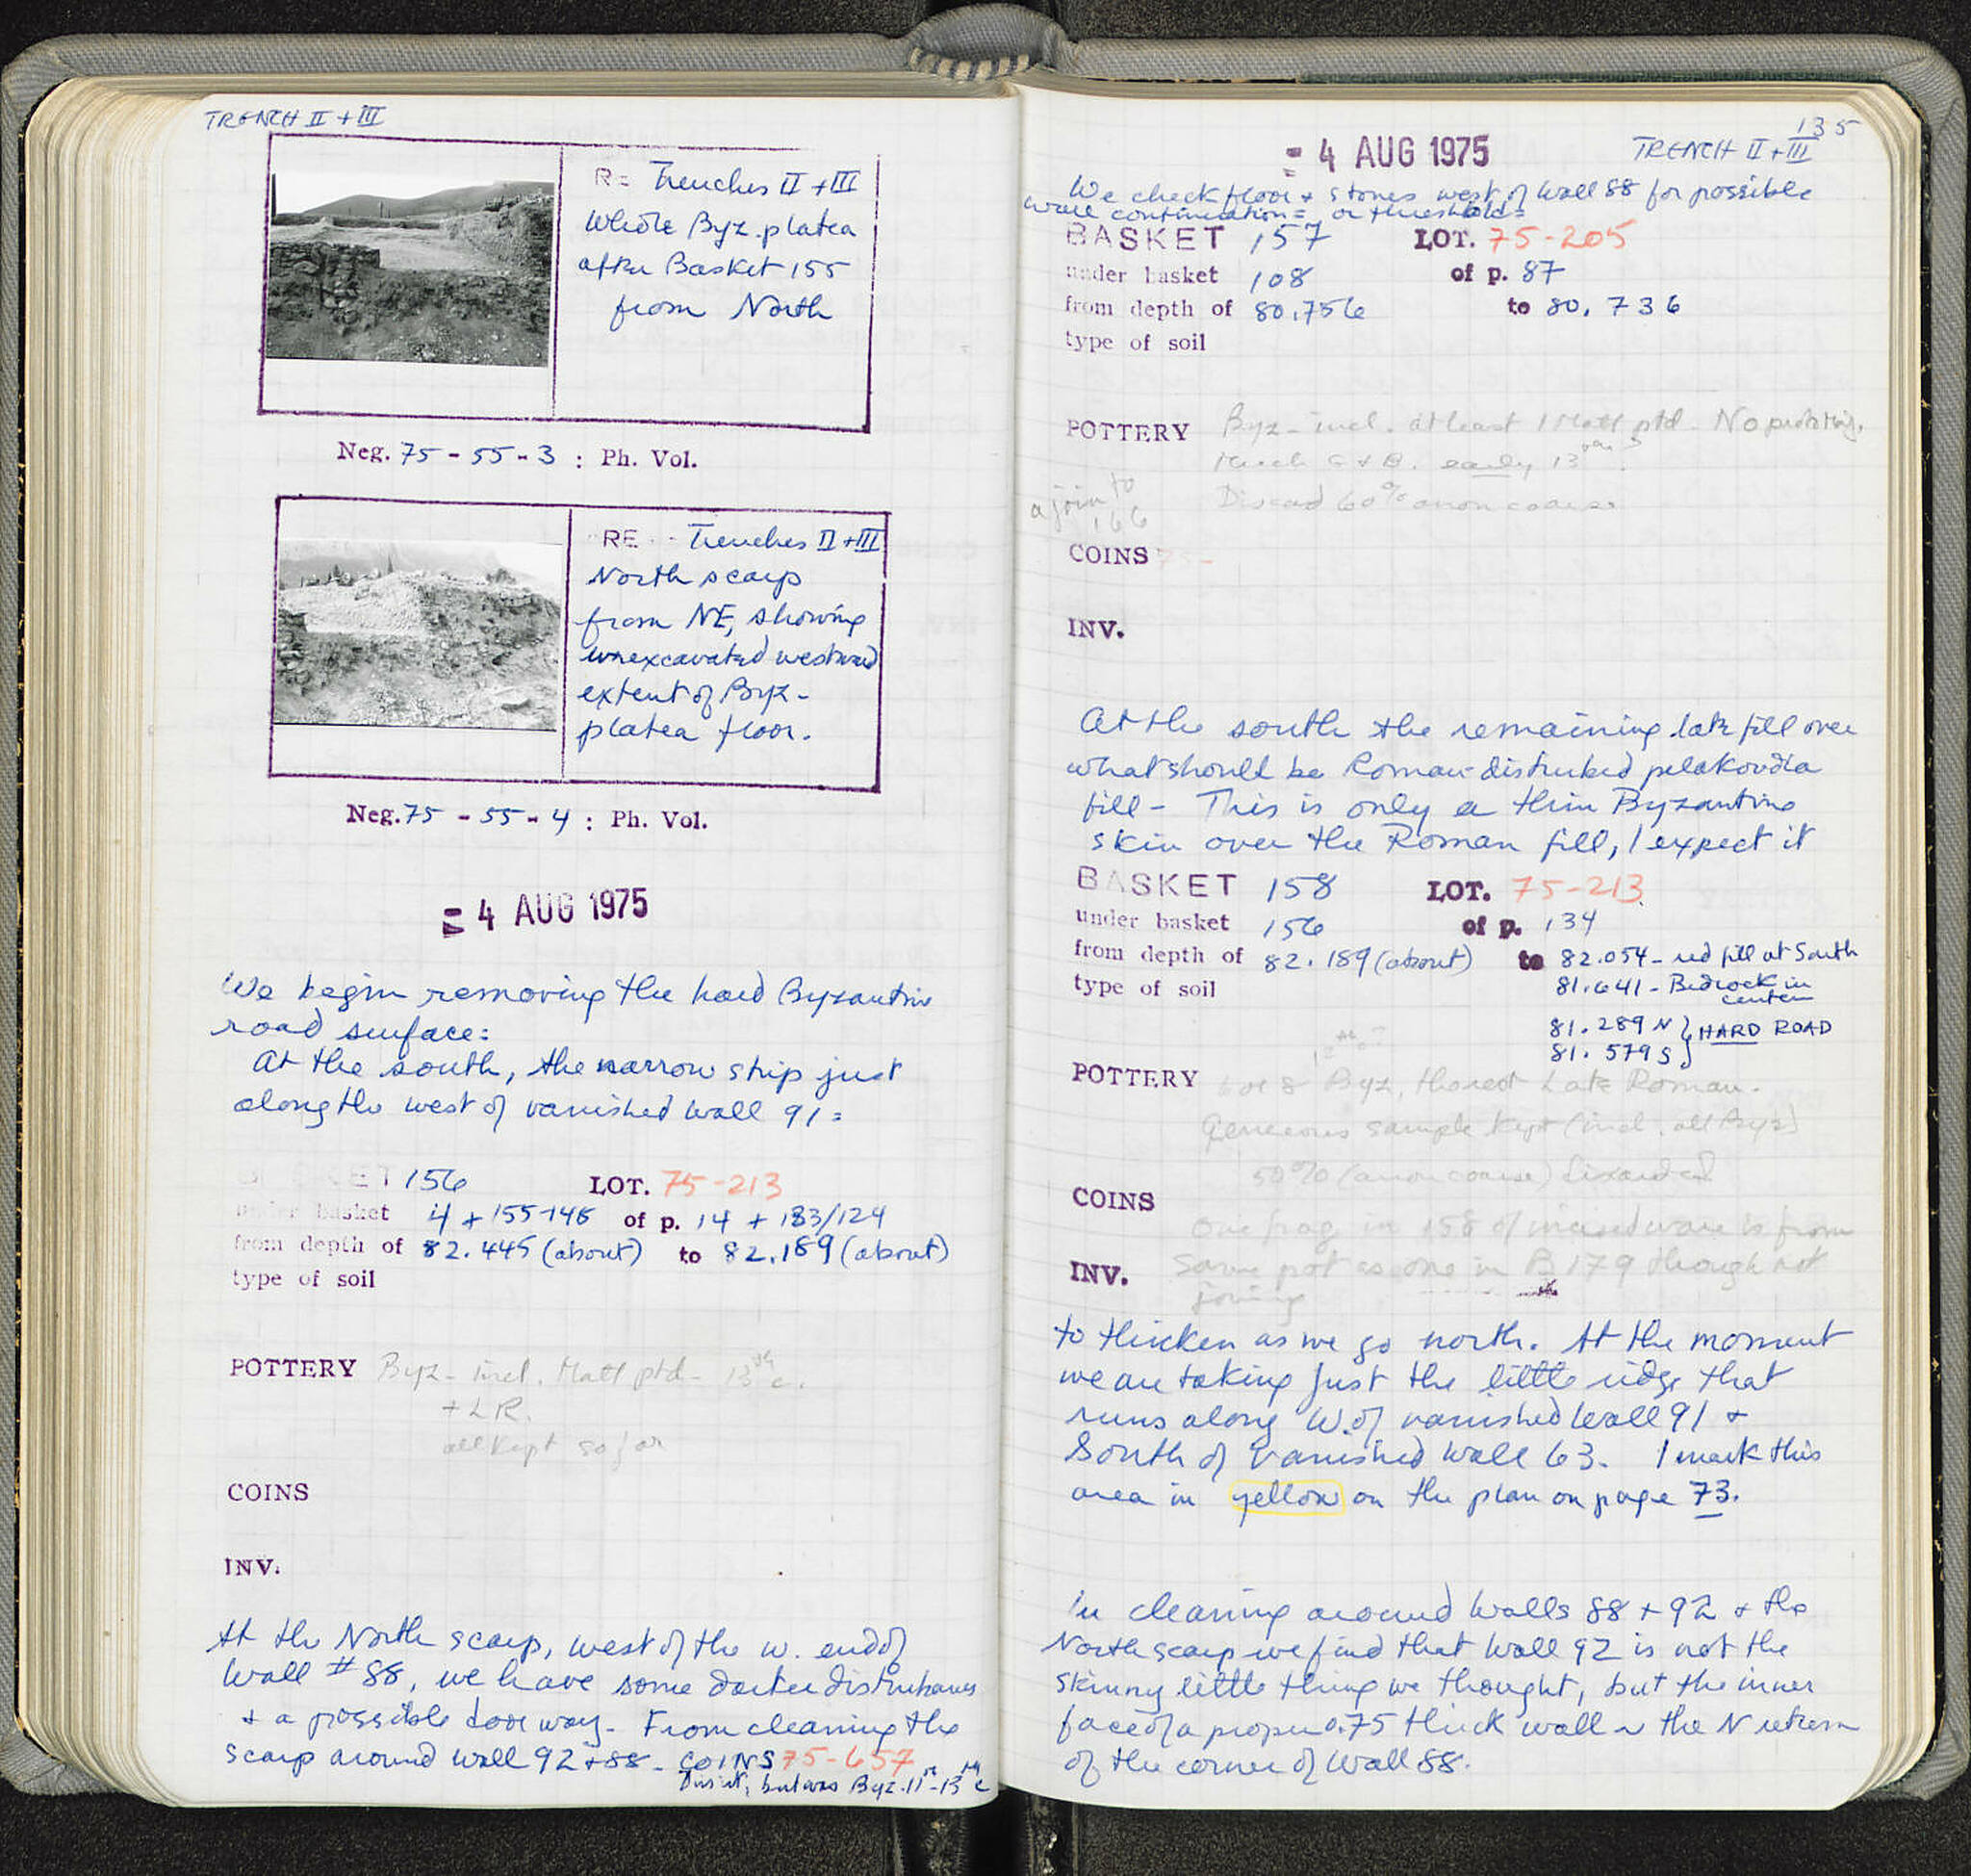 TRENCH II + III
RE Trenches II + III
Whole Byz. platea
after Basket 155
from North
Neg. 75 - 55 - 3 : Ph. Vol.
RE Trenches II + III
North scarp
from NE, showing
unexcavated westward
extent of Byz-
platea floor.
Neg. 75 - 55 - 4 : Ph. Vol.
= 4 AUG 1975
We begin removing the hard Byzantine
road surface:
At the south, the narrow strip just
along the west of vanished wall 91=
BASKET 156 LOT. 75-213
under basket 4 + 155-146 of p. 14 + 133/124
from depth of 82.445 (about) to 82.189 (about)
type of soil
POTTERY Byz- incl. Matt ptd- 13th c.
+ LR.
all kept so far
COINS
INV.
At the North scarp, west of the w. end of
Wall # 88, we have some darker disturbances
+ a possible doorway. From cleaning the
scarp around wall 92 + 88 - COINS 75-657
but was Byz. 11th-13th c
135
= 4 AUG 1975 TRENCH II + III
We check floor + stones west of Wall 88 for possible
wall continuation = or threshold=
BASKET 157 LOT. 75-205
under basket 108 of p. 87
from depth of 80.756 to 80.736
type of soil
POTTERY Byz- incl. at least 1 Matt ptd- No
early 13th
a join to
166
Discard 60% anon coarse
COINS 75-
INV.
At the south the remaining late fill over
what should be Roman-disturbed pelakoudia
fill - This is only a thin Byzantine
skin over the Roman fill, I expect it
BASKET 158 LOT. 75-213
under basket 156 of p. 134
from depth of 82.189 (about) to 82.054 - red fill at South
type of soil 81.641 - Bedrock in
center
81.289 N } HARD ROAD
81.579 S
12th c?
POTTERY 6 or 8 Byz, the rest Late Roman.
Generous sample kept (incl. all Byz)
50% (anon coarse) discarded
COINS
One frag in 158 of incised ware is from
INV. same pot as one in B 179 though not
joining
to thicken as we go north. At the moment
we are taking just the little ridge that
runs along W. of vanished Wall 91 +
South of vanished Wall 63. I mark this
area in yellow on the plan on page 73.
In cleaning around Walls 88 + 92 + the
North scarp we find that Wall 92 is not the
skinny little thing we thought, but the inner
face of a proper 0.75 thick wall ~ the N return
of the corner of Wall 88.